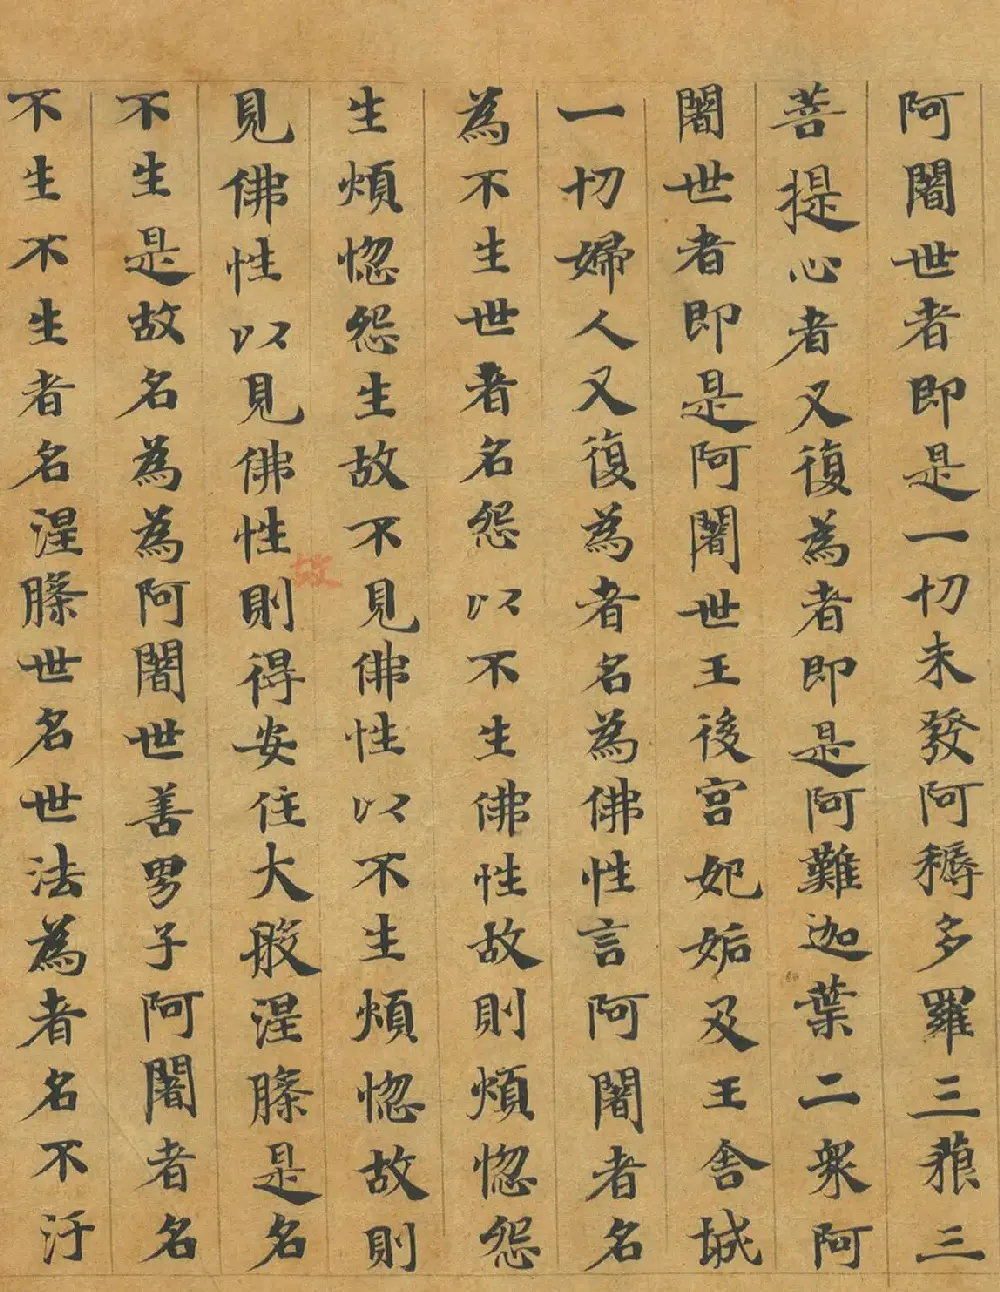 阿闍世者即是一切未發阿耨多羅三藐三
菩提心者又復為者即是阿難迦葉二眾阿
闍世者即是阿闍世王後宮妃姤及王舍城
一切婦人又復為者名為佛性言阿闍者名
為不生世者名怨以不生佛性故則煩惱怨
生煩惱怨生故不見佛性以不生煩惱故則
見佛性以見佛性故則得安住大般涅槃是名
不生是故名為為阿闍世善男子阿闍者名
不生不生者名涅槃世名世法為者名不汙